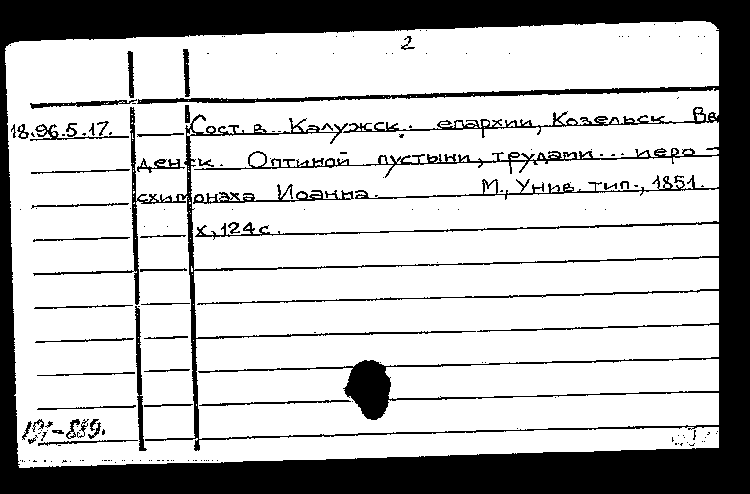 2
18.96.5.17. Сост. в Калужск. епархии, Козельск. Вве
денск. Оптиной пустыни, трудами... иеро-
схимонаха Иоанна. М., Унив. тип., 1851.
X, 124 с.
191-889.